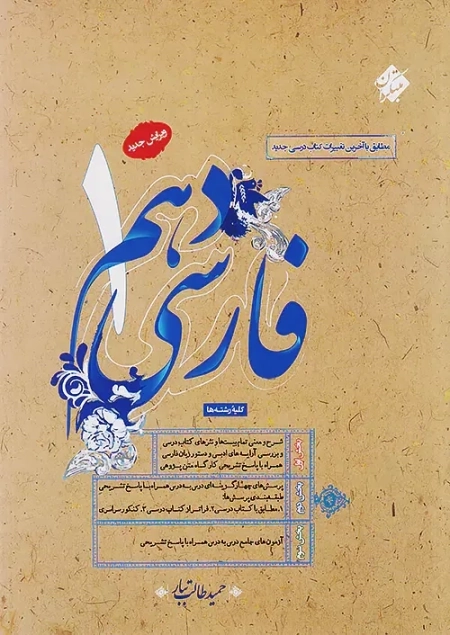 مبتکران
مطابق با آخرین تغییرات کتاب درسی جدید
ویرایش جدید
فارسی دهم
۱
کلیهٔ رشته‌ها
بخش اول
شرح و معنی تمام بیت‌ها و نثرهای کتاب درسی
و بررسی آرایه‌های ادبی و دستور زبان فارسی
همراه با پاسخ تشریحی کارگاه متن‌پژوهی
بخش دوم
پرسش‌های چهارگزینه‌ای درس به درس همراه با پاسخ تشریحی
طبقه‌بندی پرسش‌ها:
۱. مطابق با کتاب درسی ۲. فراتر از کتاب درسی ۳. کنکور سراسری
بخش سوم
آزمون‌های جامع درس به درس همراه با پاسخ تشریحی
حمید طالب تبار